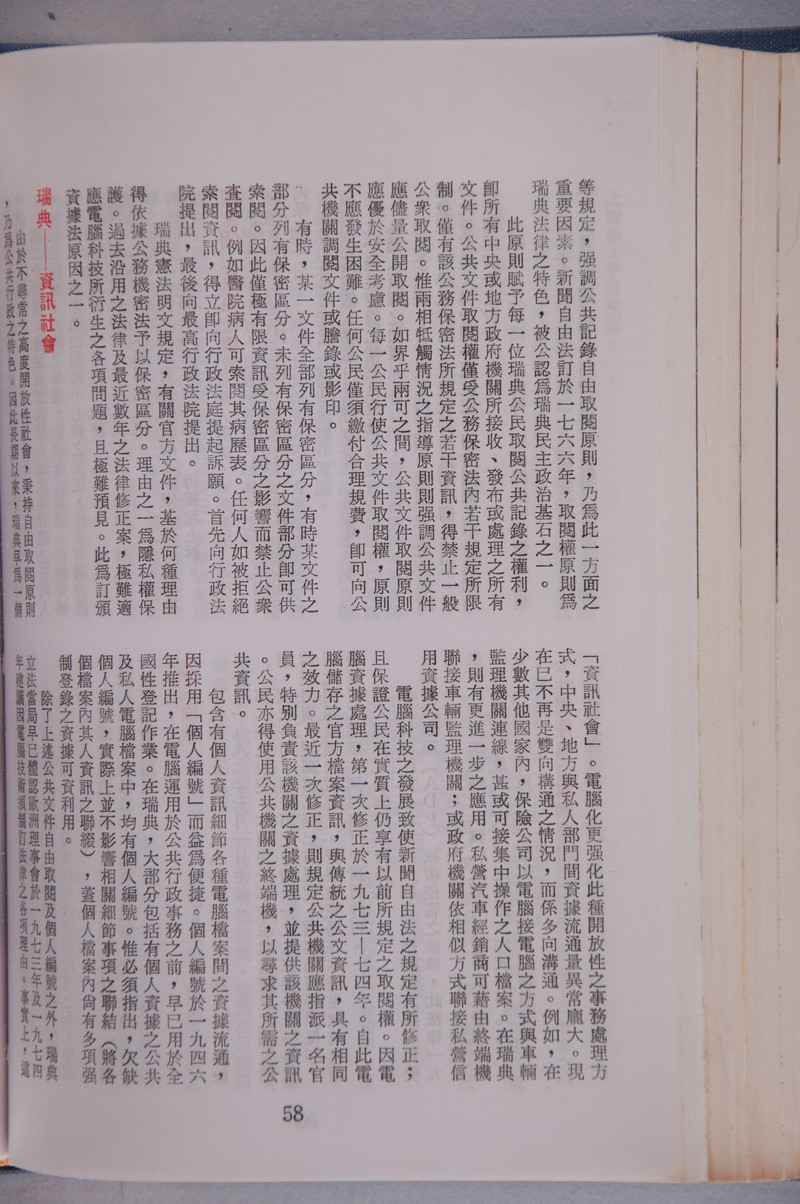 等規定，强調公共記錄自由取閱原則，乃爲此一方面之
重要因素。新聞自由法訂於一七六六年，取閱權原則爲
瑞典法律之特色，被公認爲瑞典民主政治基石之一。
此原則賦予每一位瑞典公民取閱公共記錄之權利，
卽所有中央或地方政府機關所接收、發布或處理之所有
文件。公共文件取閱權僅受公務保密法內若干規定所限
制。僅有該公務保密法所規定之若干資訊，得禁止一般
公衆取閱。惟兩相牴觸情況之指導原則則强調公共文件
應儘量公開取閱。如界乎兩可之間，公共文件取閱原則
應優於安全考慮。每一公民行使公共文件取閱權，原則
不應發生困難。任何公民僅須繳付合理規費，卽可向公
共機關調閱文件或謄錄或影印。
有時，某一文件全部列有保密區分，有時某文件之
部分列有保密區分。未列有保密區分之文件部分卽可供
索閱。因此僅極有限資訊受保密區分之影響而禁止公衆
查閱。例如醫院病人可索閱其病歷表。任何人如被拒絕
索閱資訊，得立卽向行政法庭提起訴願。首先向行政法
院提出，最後向最高行政法院提出。
瑞典憲法明文規定，有關官方文件，基於何種理由
得依據公務機密法予以保密區分。理由之一爲隱私權保
護。過去沿用之法律及最近數年之法律修正案，極難適
應電腦科技所衍生之各項問題，且極難預見。此爲訂頒
資據法原因之一。
瑞典——資訊社會
由於不尋常之高度開放性社會，秉持自由取閱原則
，乃爲公共行政之特色。因此長期以來，瑞典早爲一個
「資訊社會」。電腦化更强化此種開放性之事務處理方
式，中央、地方與私人部門間資據流通量異常龐大。現
在已不再是雙向構通之情況，而係多向溝通。例如，在
少數其他國家內，保險公司以電腦接電腦之方式與車輛
監理機關連線，甚或可接集中操作之人口檔案。在瑞典
，則有更進一步之應用。私營汽車經銷商可藉由終端機
聯接車輛監理機關；或政府機關依相似方式聯接私營信
用資據公司。
電腦科技之發展致使新聞自由法之規定有所修正；
且保證公民在實質上仍享有以前所規定之取閱權。因電
腦資據處理，第一次修正於一九七三—七四年。自此電
腦儲存之官方檔案資訊，與傳統之公文資訊，具有相同
之效力。最近一次修正，則規定公共機關應指派一名官
員，特别負責該機關之資據處理，並提供該機關之資訊
。公民亦得使用公共機關之終端機，以尋求其所需之公
共資訊。
包含有個人資訊細節各種電腦檔案間之資據流通，
因採用「個人編號」而益爲便捷。個人編號於一九四六
年推出，在電腦運用於公共行政事務之前，早已用於全
國性登記作業。在瑞典，大部分包括有個人資據之公共
及私人電腦檔案中，均有個人編號。惟必須指出，欠缺
個人編號，實際上並不影響相關細節事項之聯結（將各
個檔案內其人資訊之聯綴），蓋個人檔案內尚有多項强
制登錄之資據可資利用。
除了上述公共文件自由取閱及個人編號之外，瑞典
立法當局早已體認歐洲理事會於一九七三年及一九七四
年建議因電腦技術須制訂法律之各項理由。事實上，這
58